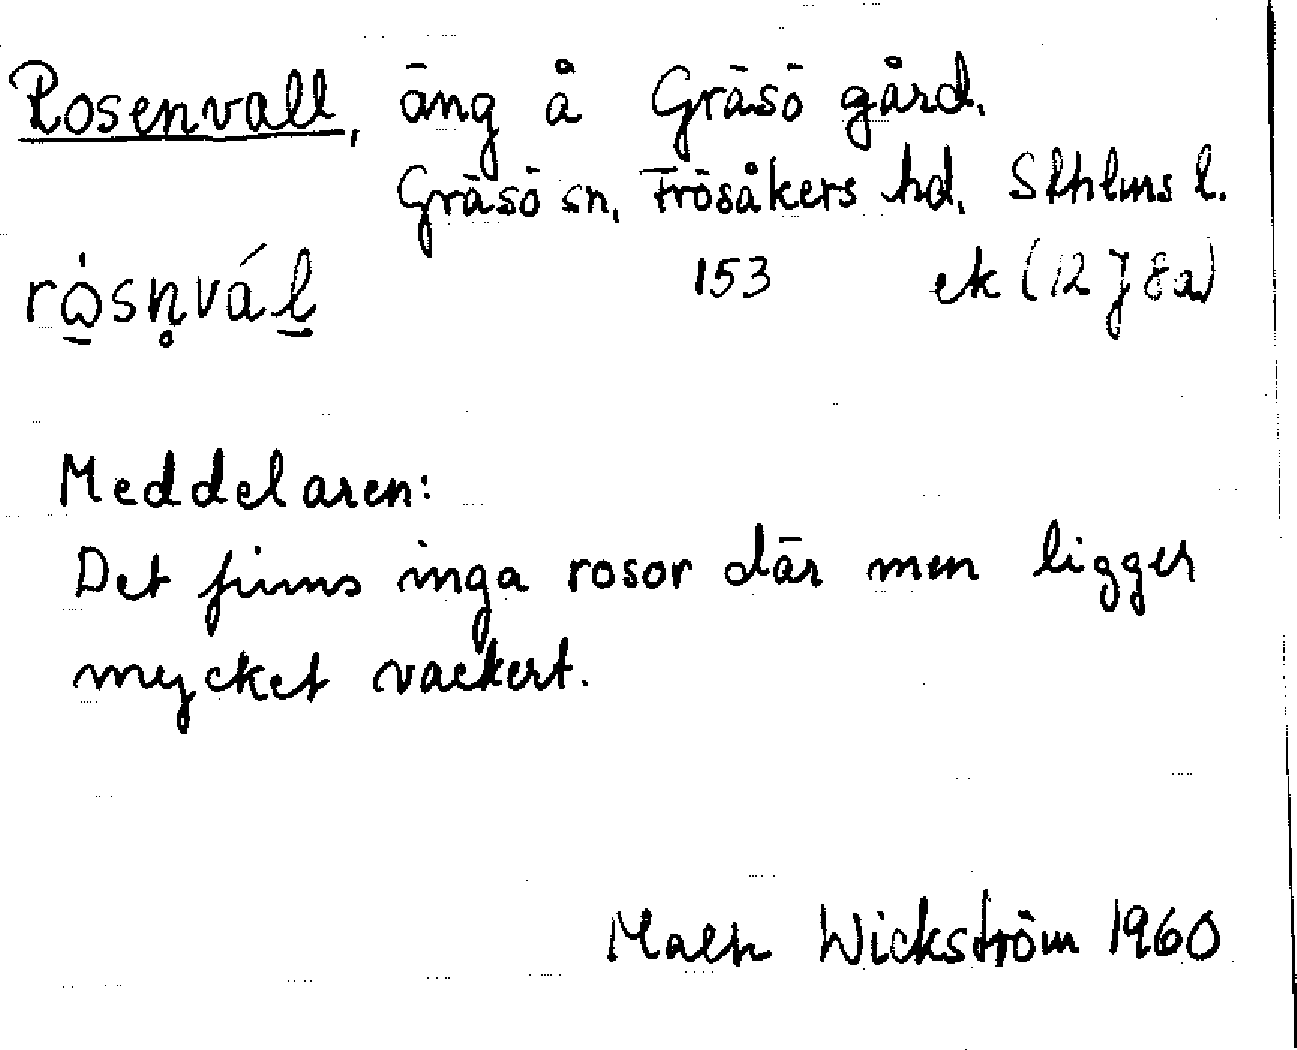 Rosenvall, äng å Gräsö gård.
Gräsö sn, Frösåkers hd. Sthlms l.
153 ek (12 J 8a)
Meddelaren:
Det finns inga rosor där men ligger
mycket vackert.
Wickström 1960